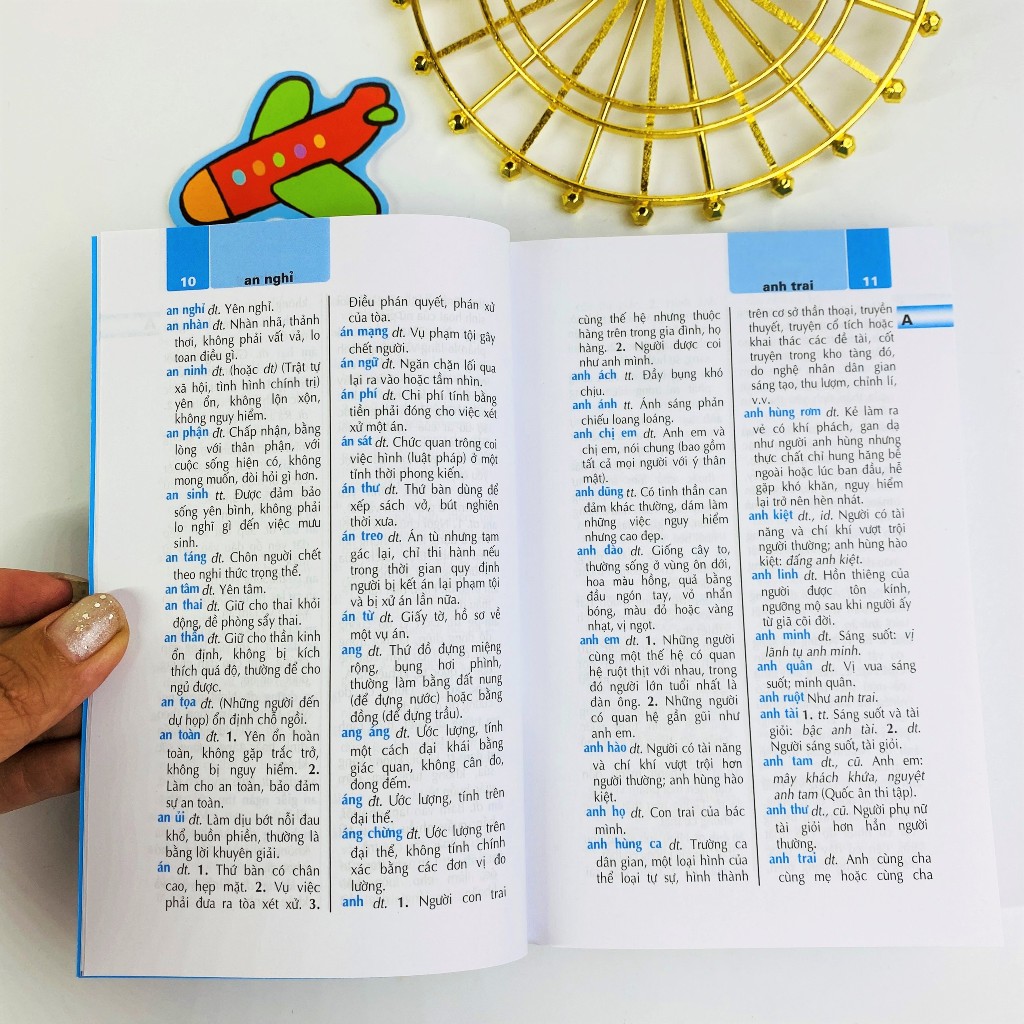 10
an nghỉ
an nghỉ đt. Yên nghỉ.
an nhàn dt. Nhàn nhã, thảnh
thơi, không phải vất vả, lo
toan điều gì.
an ninh dt. (hoặc dt) (Trật tự
xã hội, tình hình chính trị)
yên ổn, không lộn xộn,
không nguy hiểm.
an phận đt. Chấp nhận, bằng
lòng với thân phận, với
cuộc sống hiện có, không
mong muốn, đòi hỏi gì hơn.
an sinh tt. Được đảm bảo
sống yên bình, không phải
lo nghĩ gì đến việc mưu
sinh.
an táng đt. Chôn người chết
theo nghi thức trọng thể.
an tâm đt. Yên tâm.
an thai đt. Giữ cho thai khỏi
động, đề phòng sẩy thai.
an thần đt. Giữ cho thần kinh
ổn định, không bị kích
thích quá độ, thường để cho
ngủ được.
an tọa đt. (Những người đến
dự họp) ổn định chỗ ngồi.
an toàn dt. 1. Yên ổn hoàn
toàn, không gặp trắc trở,
không bị nguy hiểm. 2.
Làm cho an toàn, bảo đảm
sự an toàn.
an ủi đt. Làm dịu bớt nỗi đau
khổ, buồn phiền, thường là
bằng lời khuyên giải.
án dt. 1. Thứ bàn có chân
cao, hẹp mặt. 2. Vụ việc
phải đưa ra tòa xét xử. 3.
Điều phán quyết, phán xử
của tòa.
án mạng dt. Vụ phạm tội gây
chết người.
án ngữ đt. Ngăn chặn lối qua
lại ra vào hoặc tầm nhìn.
án phí dt. Chi phí tính bằng
tiền phải đóng cho việc xét
xử một án.
án sát dt. Chức quan trông coi
việc hình (luật pháp) ở một
tỉnh thời phong kiến.
án thư dt. Thứ bàn dùng để
xếp sách vở, bút nghiên
thời xưa.
án treo dt. Án tù nhưng tạm
gác lại, chỉ thi hành nếu
trong thời gian quy định
người bị kết án lại phạm tội
và bị xử án lần nữa.
án từ dt. Giấy tờ, hồ sơ về
một vụ án.
ang dt. Thứ đồ đựng miệng
rộng, bụng hơi phình,
thường làm bằng đất nung
(để đựng nước) hoặc bằng
đồng (để đựng trầu).
ang áng đt. Ước lượng, tính
một cách đại khái bằng
giác quan, không cân đo,
đong đếm.
áng đt. Ước lượng, tính trên
đại thể.
áng chừng đt. Ước lượng trên
đại thể, không tính chính
xác bằng các đơn vị đo
lường.
anh dt. 1. Người con trai
anh trai
11
A
cùng thế hệ nhưng thuộc
hàng trên trong gia đình, họ
hàng. 2. Người được coi
như anh mình.
anh ách tt. Đầy bụng khó
chịu.
anh ánh tt. Ánh sáng phản
chiếu loang loáng.
anh chị em dt. Anh em và
chị em, nói chung (bao gồm
tất cả mọi người với ý thân
mật).
anh dũng tt. Có tinh thần can
đảm khác thường, dám làm
những việc nguy hiểm
nhưng cao đẹp.
anh đào dt. Giống cây to,
thường sống ở vùng ôn đới,
hoa màu hồng, quả bằng
đầu ngón tay, vỏ nhẵn
bóng, màu đỏ hoặc vàng
nhạt, vị ngọt.
anh em dt. 1. Những người
cùng một thế hệ có quan
hệ ruột thịt với nhau, trong
đó người lớn tuổi nhất là
đàn ông. 2. Những người
có quan hệ gần gũi như
anh em.
anh hào dt. Người có tài năng
và chí khí vượt trội hơn
người thường; anh hùng hào
kiệt.
anh họ dt. Con trai của bác
mình.
anh hùng ca dt. Trường ca
dân gian, một loại hình của
thể loại tự sự, hình thành
trên cơ sở thần thoại, truyền
thuyết, truyện cổ tích hoặc
khai thác các đề tài, cốt
truyện trong kho tàng đó,
do nghệ nhân dân gian
sáng tạo, thu lượm, chỉnh lí,
v.v.
anh hùng rơm dt. Kẻ làm ra
vẻ có khí phách, gan dạ
như người anh hùng nhưng
thực chất chỉ hung hăng bề
ngoài hoặc lúc ban đầu, hễ
gặp khó khăn, nguy hiểm
lại trở nên hèn nhát.
anh kiệt dt., id. Người có tài
năng và chí khí vượt trội
người thường; anh hùng hào
kiệt: đấng anh kiệt.
anh linh dt. Hồn thiêng của
người được tôn kính,
ngưỡng mộ sau khi người ấy
từ giã cõi đời.
anh minh dt. Sáng suốt: vị
lãnh tụ anh minh.
anh quân dt. Vị vua sáng
suốt; minh quân.
anh ruột Như anh trai.
anh tài 1. tt. Sáng suốt và tài
giỏi: bậc anh tài. 2. dt.
Người sáng suốt, tài giỏi.
anh tam dt., cũ. Anh em:
mây khách khứa, nguyệt
anh tam (Quốc âm thi tập).
anh thư dt., cũ. Người phụ nữ
tài giỏi hơn hẳn người
thường.
anh trai dt. Anh cùng cha
cùng mẹ hoặc cùng cha